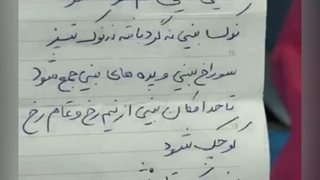 نوک بینی نه گرد باشه نه نوک تیز
سوراخ بینی و پره های بینی جمع شود
تا حد امکان بینی از نیم رخ و تمام رخ
کوچک شود